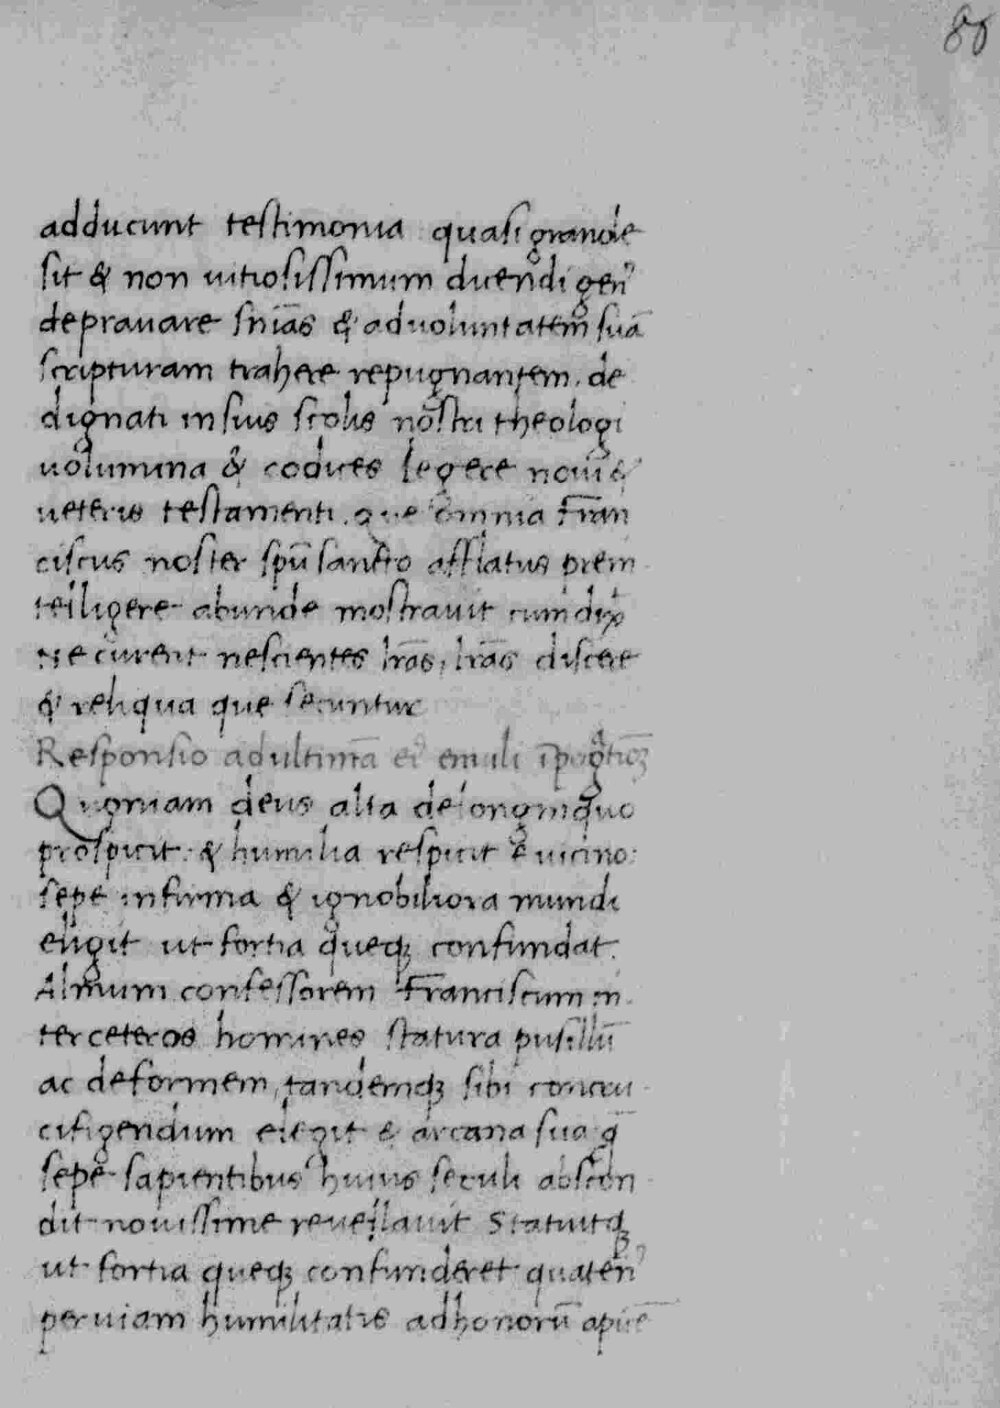 86
adducunt testimonia quasi grande
sit & non uitiosissimum dicendi gen⁹
deprauare sn̄ias & aduoluntatem suā
scripturam trahere repugnantem. de
dignati insuis scolis nostri theologi
uolumina & codices legere noui &
ueteris testamenti. que omnia Fran
ciscus noster spū sancto afflatus
telligere abunde mostrauit cum dix̄
Ne curent nescientes lr̄as, lr̄as discere
& reliqua que secuntur
Responsio adultimā ei⁹ emuli
Quoniam deus alta delonginquo
prospicit. & humilia respicit & uicino:
sepe infirma & ignobiliora mundi
eligit ut fortia queqꝫ confundat.
Almum confessorem Franciscum in
ter ceteros homines statura pusillū
ac deformem, tandemqꝫ sibi concru
cifigendum elegit & arcana sua q̄
sepe sapientibus huius seculi abscon
dit nouissime reuellauit Statuitqꝫ
ut fortia queqꝫ confunderet quaten⁹
peruiam humilitatis adhonorū